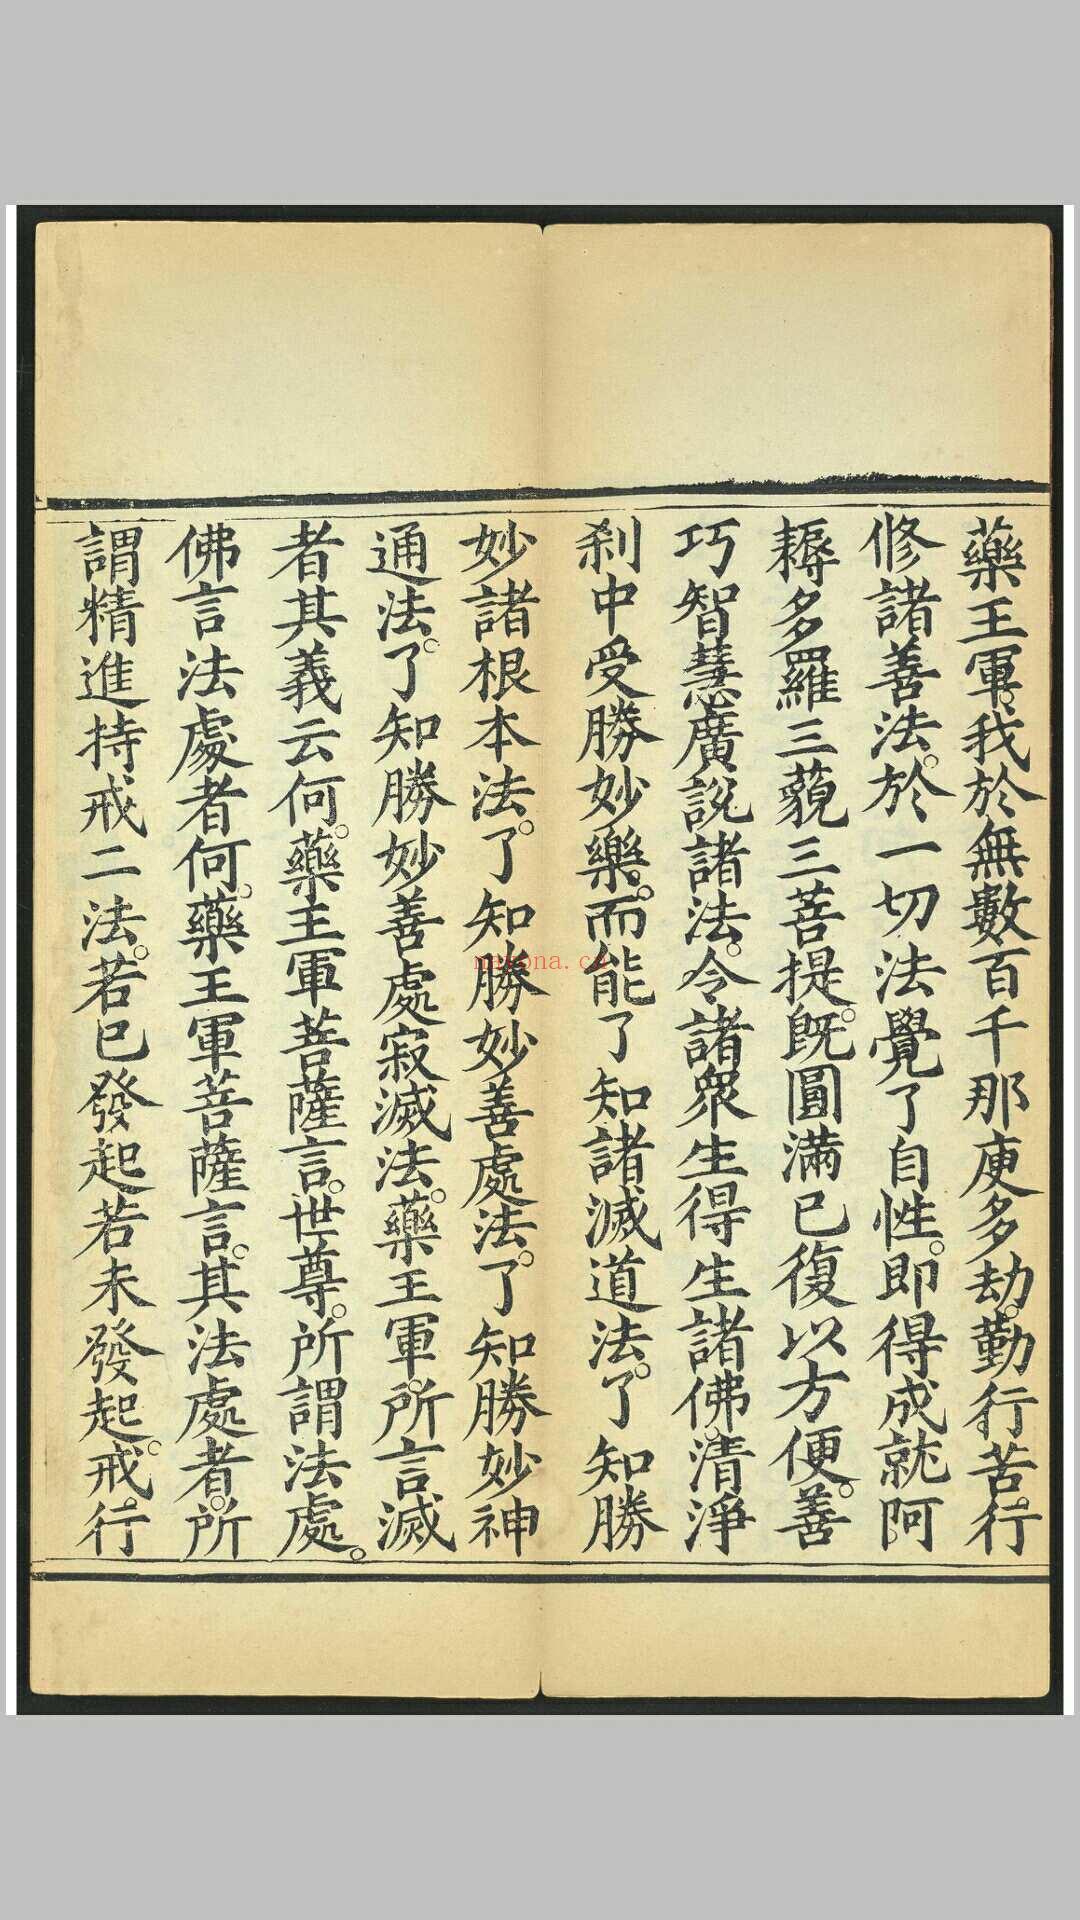 藥王軍。我於無數百千那庾多劫。勤行苦行。
修諸善法。於一切法覺了自性。即得成就阿
耨多羅三藐三菩提。既圓滿已復以方便。善
巧智慧廣說諸法。令諸衆生得生諸佛。清淨
剎中受勝妙樂。而能了知諸滅道法。了知勝
妙諸根本法。了知勝妙善處法。了知勝妙神
通法。了知勝妙善處寂滅法。藥王軍。所言滅
者其義云何。藥王軍菩薩言。世尊。所謂法處。
佛言法處者何。藥王軍菩薩言。其法處者。所
謂精進持戒二法。若已發起若未發起。戒行。
nayona.cn